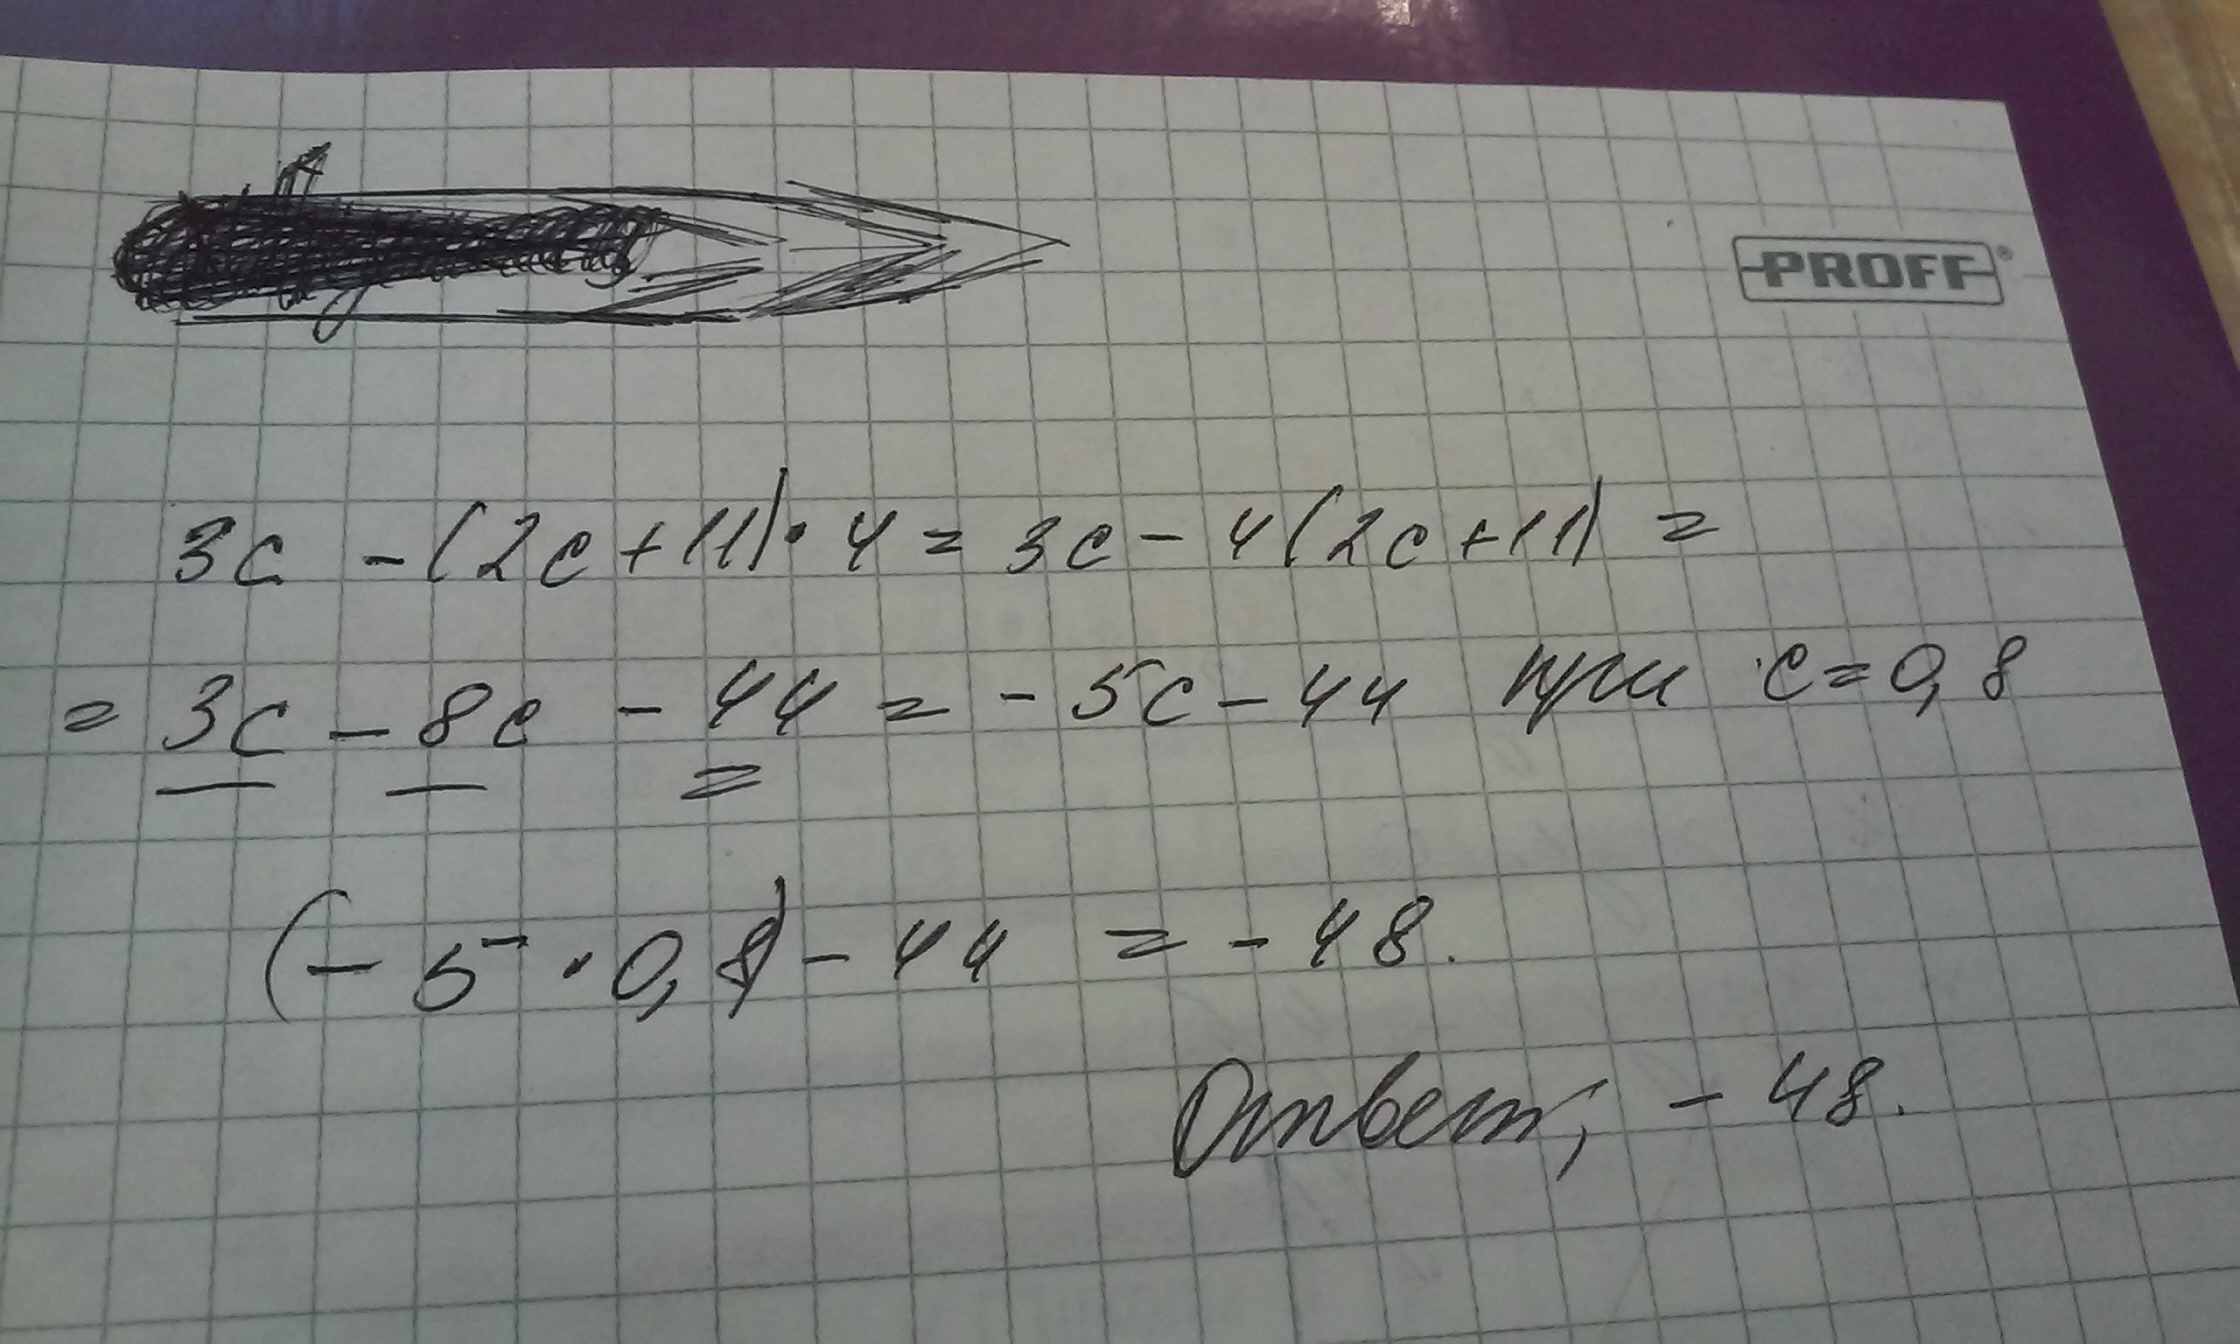 PROFF®
3c - (2c + 11) · 4 = 3c - 4(2c + 11) =
= 3c - 8c - 44 = - 5c - 44 при c = 0,8
(- 5 · 0,8) - 44 = - 48.
Ответ; - 48.